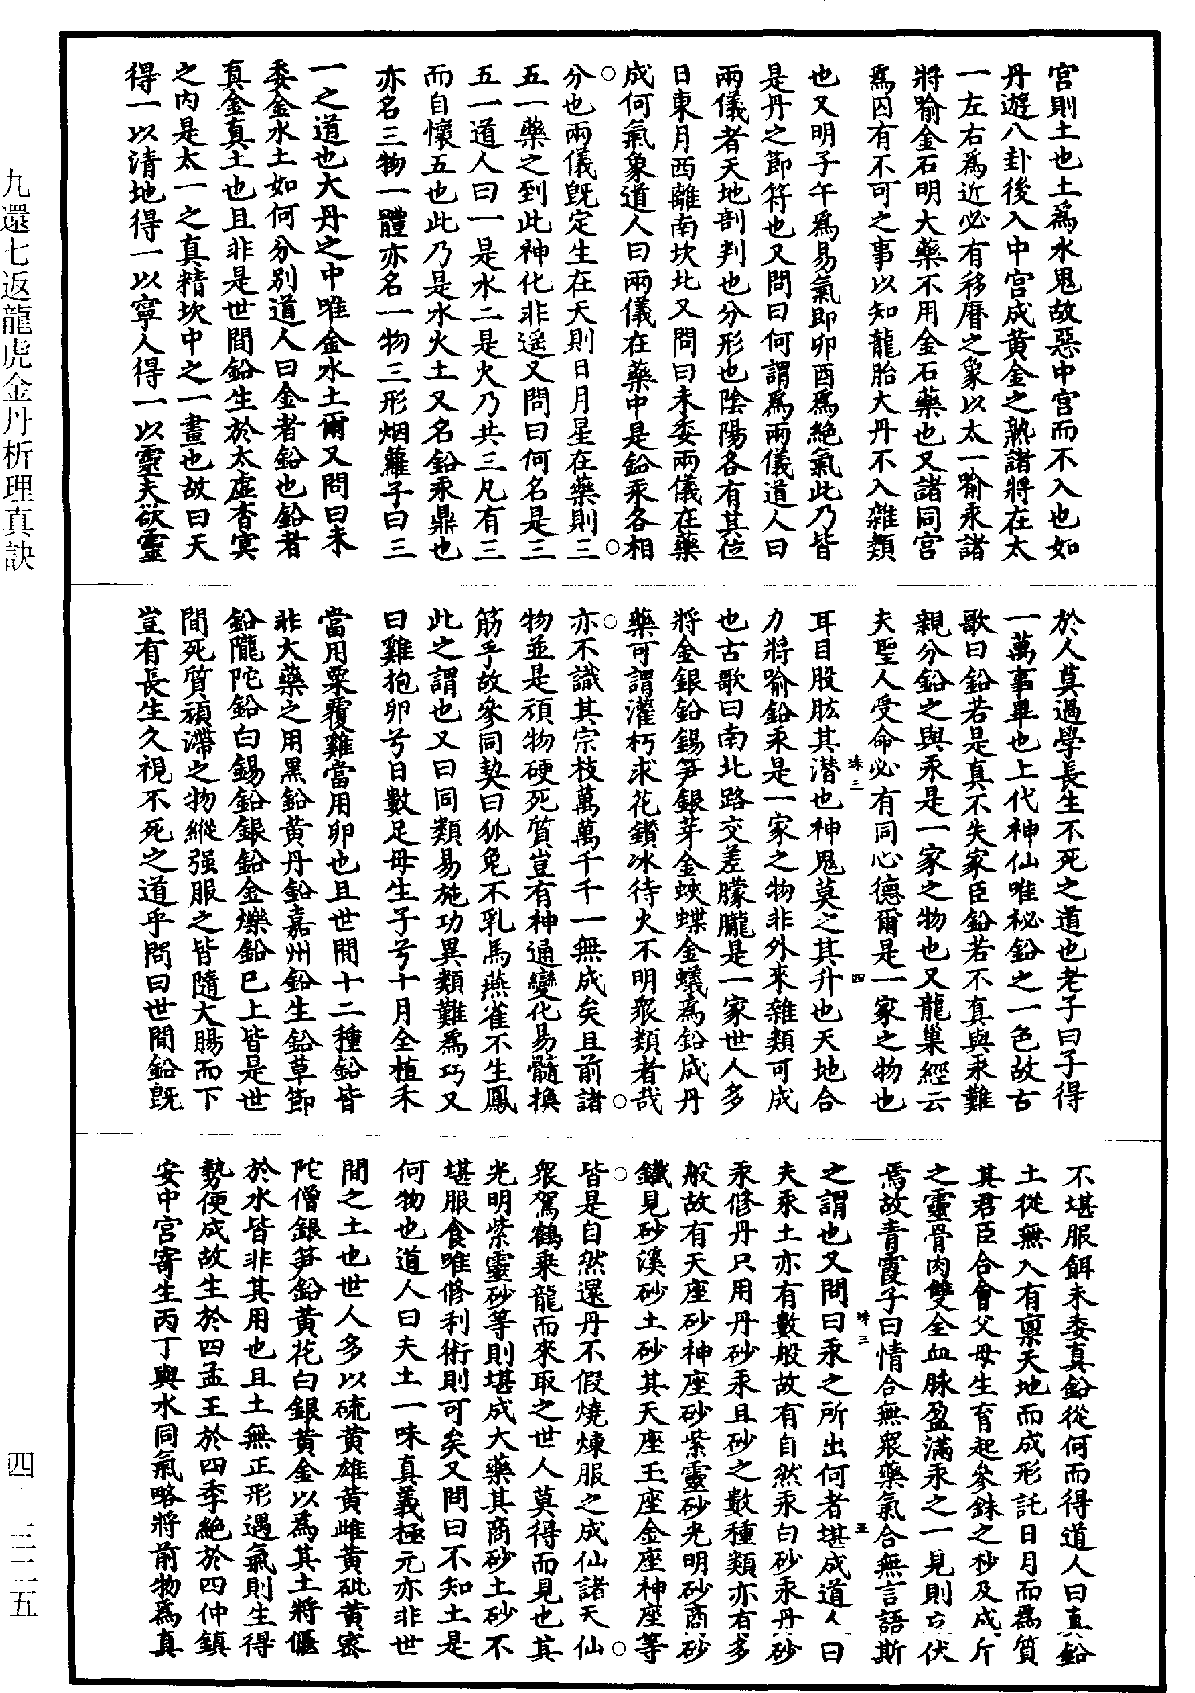 宮則土也土爲水鬼故惡中宮而不入也如
丹遊八卦後入中宮成黄金之熟諸將在太
一左右爲近必有移曆之象以太一喻汞諸
將喻金石明大藥不用金石藥也又諸同宮
爲囚有不可之事以知龍胎大丹不入雜類
也又明子午爲易氣即卯酉爲絶氣此乃皆
是丹之節符也又問曰何謂爲兩儀道人曰
兩儀者天地剖判也分形也陰陽各有其位
日東月西離南坎北又問曰未委兩儀在藥
成何氣象道人曰兩儀在藥中是鉛汞各相
分也兩儀旣定生在天則日月星在藥則三
五一藥之到此神化非遥又問曰何名是三
五一道人曰一是水二是火乃共三凡有三
而自懷五也此乃是水火土又名鉛汞鼎也
亦名三物一體亦名一物三形烟蘿子曰三
一之道也大丹之中唯金水土爾又問曰未
委金水土如何分別道人曰金者鉛也鉛者
真金真土也且非是世間鉛生於太虚杳冥
之内是太一之真精坎中之一畫也故曰天
得一以清地得一以寧人得一以靈夫欲靈
於人莫過學長生不死之道也老子曰子得
一萬事畢也上代神仙唯秘鉛之一色故古
歌曰鉛若是真不失家臣鉛若不真與汞難
親分鉛之與汞是一家之物也又龍巢經云
夫聖人受命必有同心德爾是一家之物也
耳目股肱其潜也神鬼莫之其升也天地合
力將喻鉛汞是一家之物非外來雜類可成
也古歌曰南北路交差朦朧是一家世人多
將金銀鉛錫笋銀芽金蛺蝶金蟻爲鉛成丹
藥可謂灌朽求花鑽冰待火不明衆類者哉
亦不識其宗枝萬萬千千一無成矣且前諸
物並是頑物硬死質豈有神通變化易髓換
筋乎故參同契曰狐兔不乳馬燕雀不生鳳
此之謂也又曰同類易施功異類難爲巧又
曰雞抱卵兮日數足母生子兮十月全植禾
當用粟覆雞當用卵也且世間十二種鉛皆
非大藥之用黑鉛黄丹鉛嘉州鉛生鉛草節
鉛隴陀鉛白錫鉛銀鉛金爍鉛巳上皆是世
間死質頑滯之物縱强服之皆隨大腸而下
豈有長生久視不死之道乎問曰世間鉛旣
不堪服餌未委真鉛從何而得道人曰真鉛
土從無入有禀天地而成形託日月而爲質
其君臣合會父母生育起參銖之杪及成斤
之靈骨肉雙全血脉盈滿汞之一見則伏
焉故青霞子曰情合無衆藥氣合無言語斯
之謂也又問曰汞之所出何者堪成道人曰
夫汞土亦有數般故有自然汞白砂汞丹砂
汞修丹只用丹砂汞且砂之數種類亦有多
般故有天座砂神座砂紫靈砂光明砂商砂
鐵見砂溪砂土砂其天座玉座金座神座等
皆是自然還丹不假燒煉服之成仙諸天仙
衆駕鶴乘龍而來取之世人莫得而見也其
光明紫靈砂等則堪成大藥其商砂土砂不
堪服食唯修利術則可矣又問曰不知土是
何物也道人曰夫土一味真義極元亦非世
間之土也世人多以硫黄雄黄雌黄砒黄密
陀僧銀笋鉛黄花白銀黄金以爲其土將偃
於水皆非其用也且土無正形遇氣則生得
勢便成故生於四孟王於四季絶於四仲鎮
安中宮寄生丙丁與水同氣略將前物爲真
九還七返龍虎金丹析理真訣
四
三二五